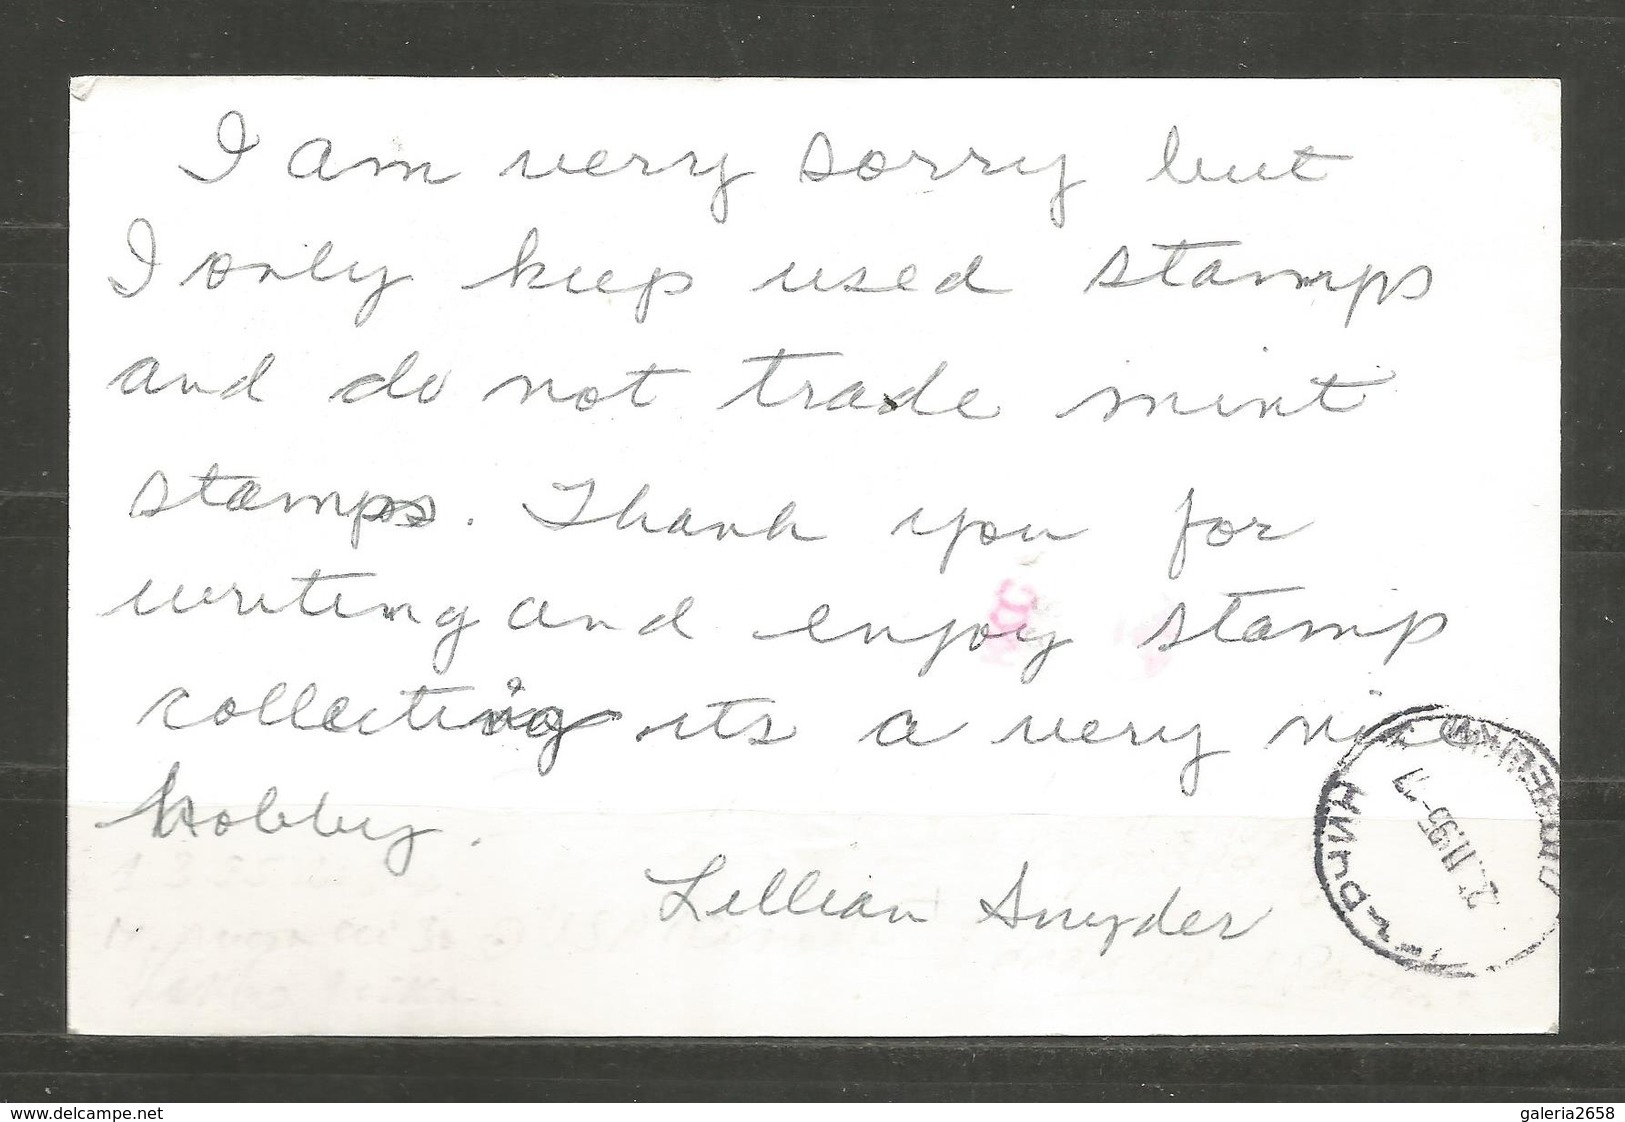 I am very sorry but
I only keep used stamps
and do not trade mint
stamps. Thank you for
writing and enjoy stamp
collecting its a very nice
hobby.
Lillian Snyder
www.delcampe.net
galeria2658